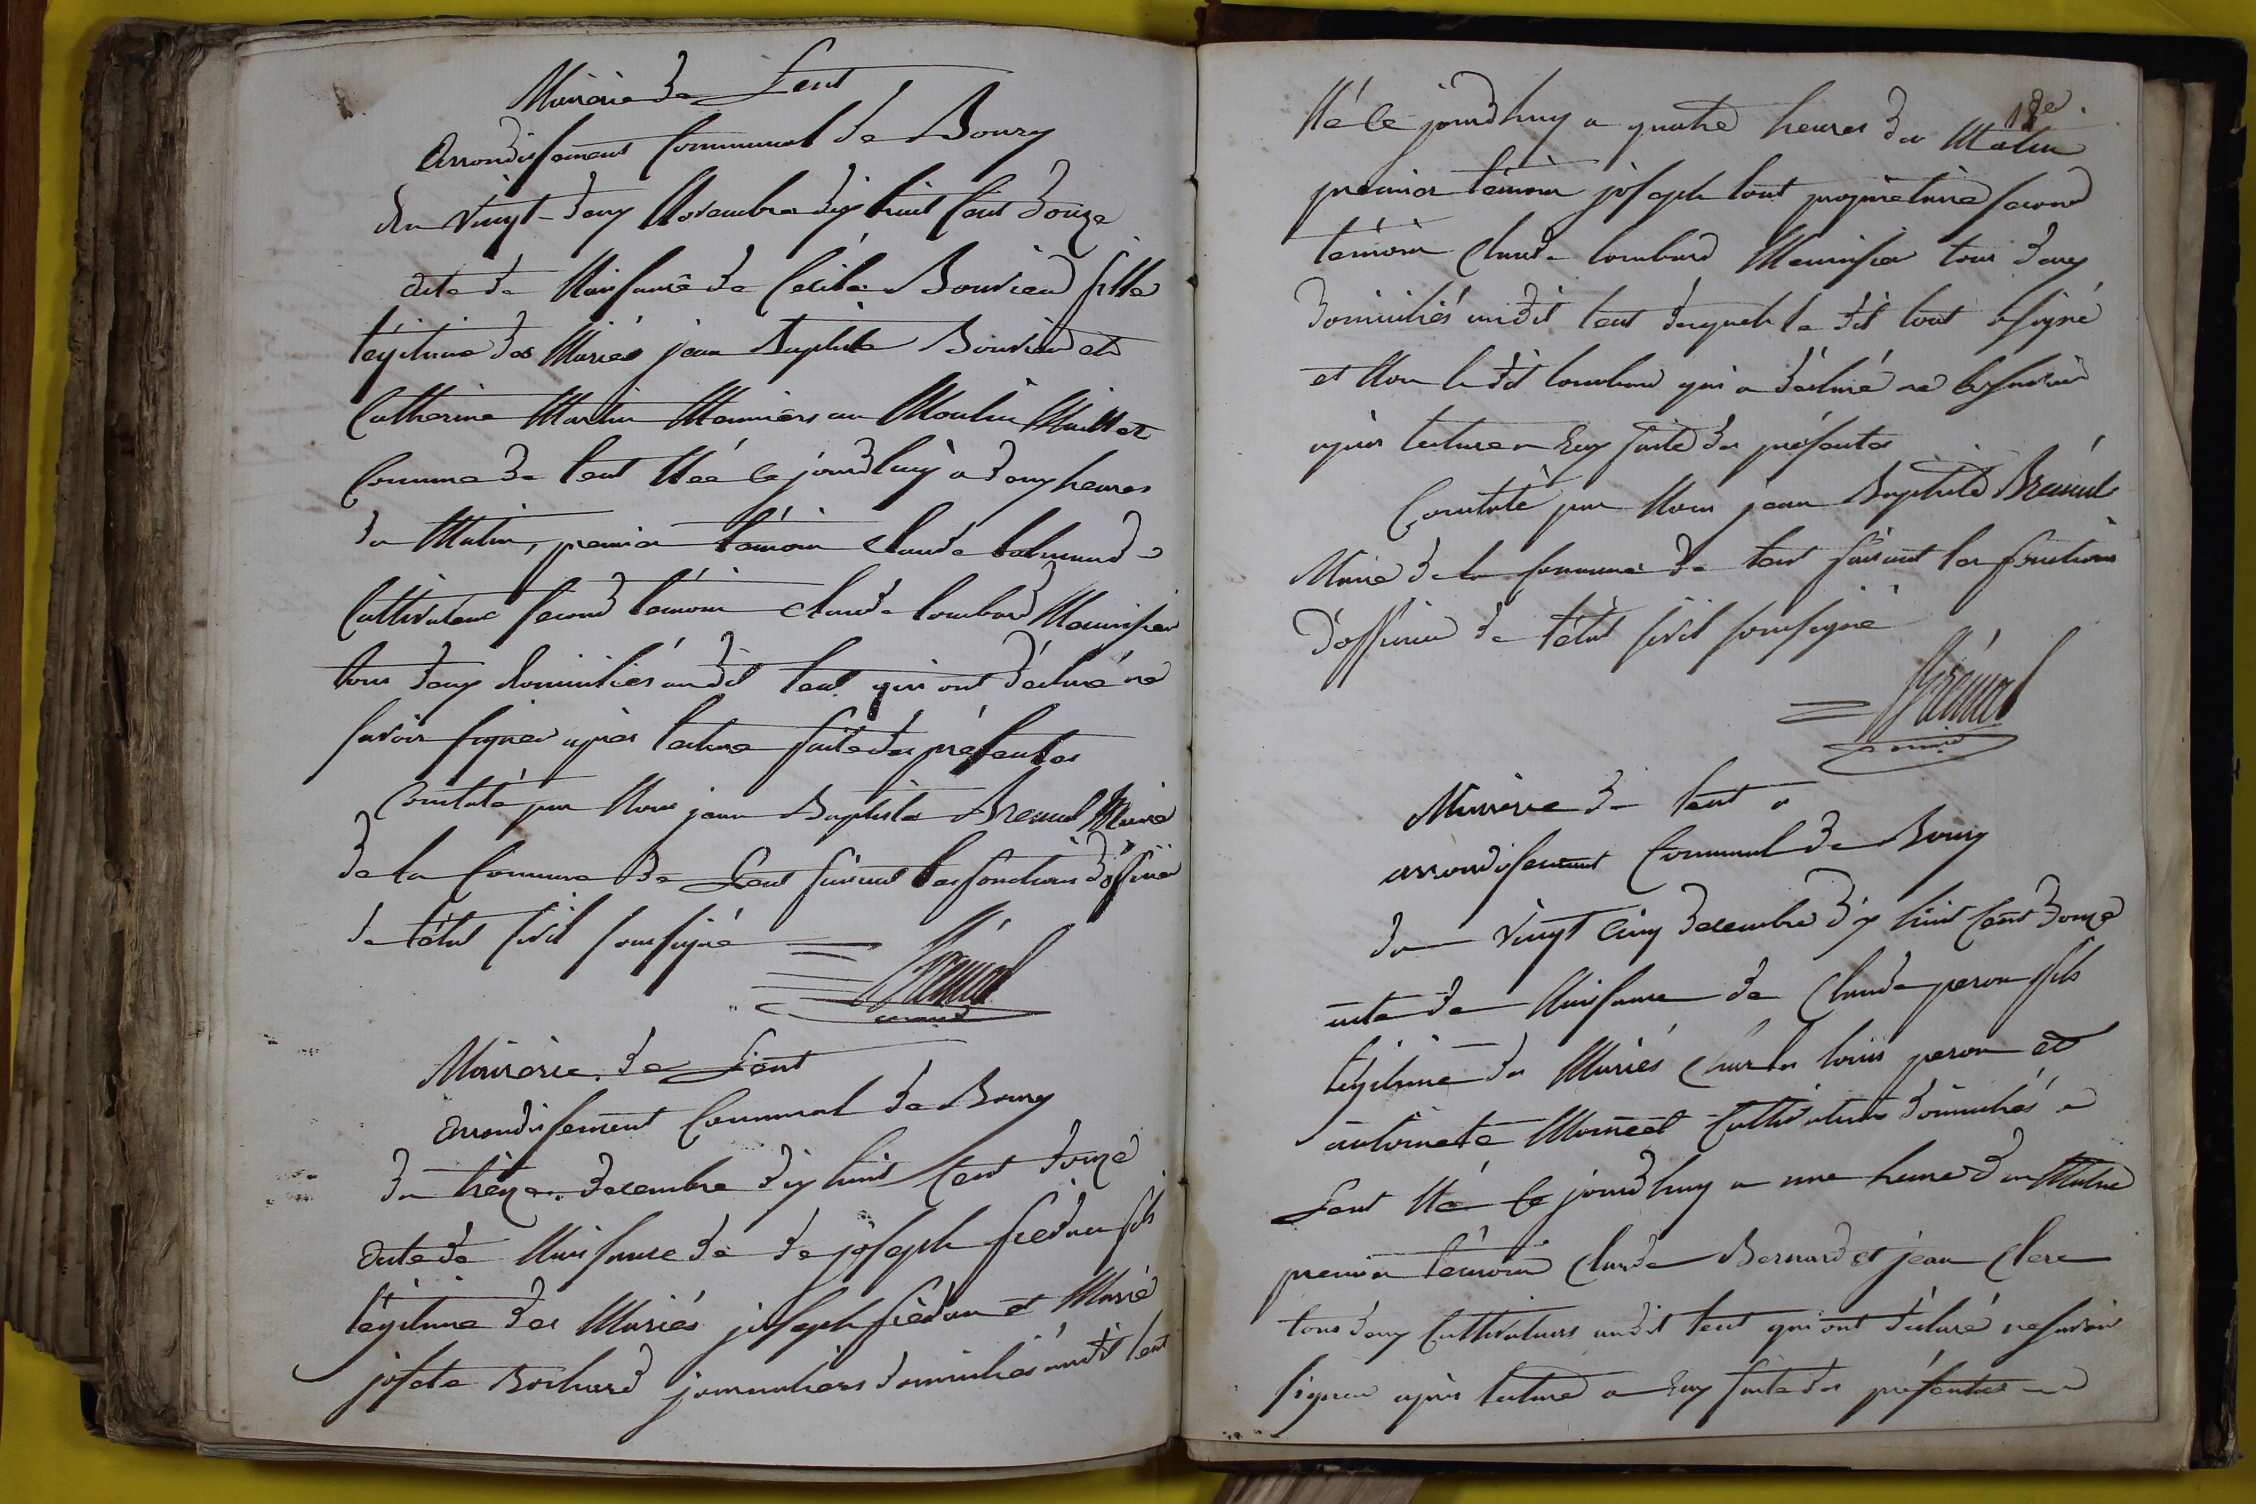 Mairie de Lent
arrondissement Communal de Bourg
du vingt-deux Novembre dix huit Cent douze
acte de Naissance de Cécile Bouvier fille
légitime des Mariés jean Baptiste Bouvier et
Catherine Martin Meuniers au Moulin
Commune de lent Née le jourdhuy a deux heures
du Matin, premier témoin claude
Cultivateur second témoin claude lombard Menuisier
tous deux domiciliés audit lent qui ont déclaré ne
savoir signer après lecture faite des présentes
Constaté par Nous jean Baptiste Brémal Maire
de la Commune de Lent faisant les fonctions d'officier
de l'état sivil soussigné
Brémal
Mairie de Lent
arrondissement Communal de Bourg
du treize décembre dix huit Cent douze
acte de Naissance de de joseph fils
légitime des Mariés joseph et Marie
josete Bochard journaliers domiciliés audit lent
18e
Né le jourdhuy a quatre heures du Matin
premier témoin joseph tout propriétaire second
témoin claude lombard Menuisier tous deux
domiciliés audit lent desquels le dit tout a signé
et Non le dit lombard qui a déclaré ne le savoir
après lecture a Eux faite des présentes
Constaté par Nous jean Baptiste Brémal
Maire de la Commune de lent faisant les fonctions
D'officier de l'état sivil soussigné
Brémal
Mairie de lent
arrondissement Communal de Bourg
du vingt cinq décembre dix huit Cent douze
acte de Naissance de Claude peron fils
légitime des Mariés Charles louis peron et
antoinete Cultivateurs domiciliés a
Lent Né le jourdhuy a une heure du Matin
premier témoin Claude Bernard et jean Clerc
tous deux Cultivateurs audit lent qui ont déclaré ne savoir
signer après lecture a Eux faite des présentes